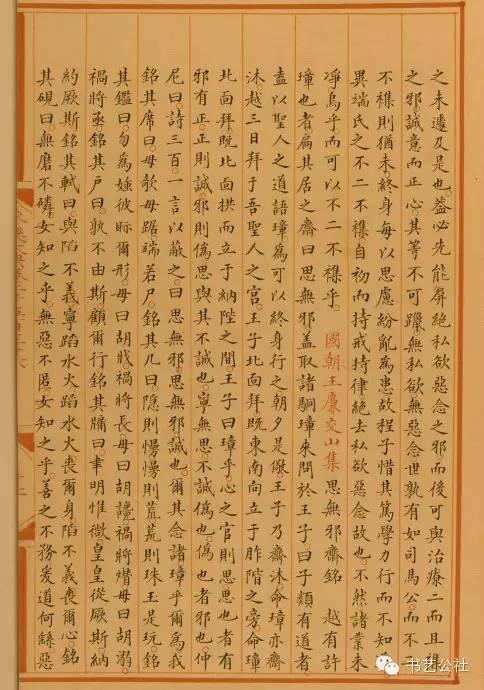 之未遽及是也。益必先能屏絶私欲惡念之邪而後可與治療二而且襍
之邪誠意而正心。其等不可躐。無私欲無惡念世孰有如司馬公。而不二
不襍則猶未。終身每以思慮紛亂為患故程子惜其篤學力行而不知
異端氏之不二不襍自初而持戒持律絶去私欲惡念故也。不然諸業未
凈烏乎而可以不二不襍乎。 國朝王廉交山集 思無邪齋銘 越有許
璋也者。扁其居之齋曰思無邪。盖取諸駉。璋来問於王子曰子類有道者
盍以聖人之道語璋。為可以終身行之朝夕是儆。王子乃齋沐。命璋亦齋
沐。越三日拜于吾聖人之宫。王子北面拜。既東南向立于胙階之旁。命璋
北面拜。既北面拱而立于納陛之間。王子曰璋乎。心之官則思。思也者有
邪有正。正則誠。邪則僞。思與其不誠也。寧無思。不誠僞也。僞也者邪也。仲
尼曰。詩三百。一言以蔽之。曰思無邪。思無邪。誠也。爾其念諸。璋乎爾為我
銘其席曰。毋欹毋踞端若尸。銘其几曰。隠則慢。慢則荒。荒則珠玉是玩。銘
其鑑曰。勿為媸。彼眎爾形。毋曰胡戕禍將長。毋曰胡讟禍將燐。毋曰胡溺。
禍將丞。銘其户曰。孰不由斯。顧爾行。銘其牖曰。聿明惟微。皇皇從厥斯納
約。厥斯銘其軾曰。與蹈不義。寧蹈水火。蹈水火喪爾身。蹈不義喪爾心。銘
其硯曰。無磨不磷。女知之乎。無惡不匿。女知之乎。善之不務。爰道何繇惡
书艺公社